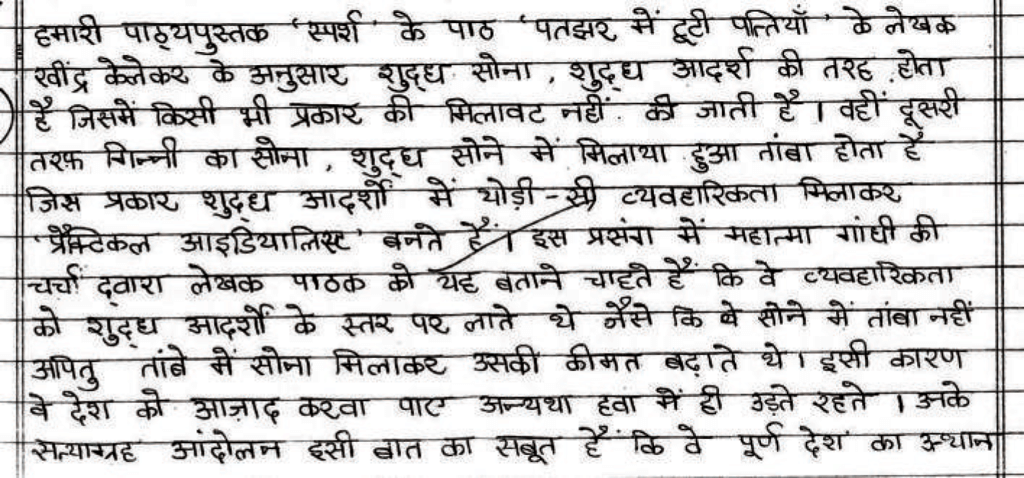 हमारी पाठ्यपुस्तक 'स्पर्श' के पाठ 'पतझर में टूटी पत्तियाँ' के लेखक
रवींद्र केलेकर के अनुसार शुद्ध सोना, शुद्ध आदर्श की तरह होता
है जिसमें किसी भी प्रकार की मिलावट नहीं की जाती है । वहीं दूसरी
तरफ़ गिन्नी का सोना, शुद्ध सोने में मिलाया हुआ तांबा होता है
जिस प्रकार शुद्ध आदर्शों में थोड़ी-सी व्यवहारिकता मिलाकर
'प्रैक्टिकल आइडियालिस्ट' बनते हैं । इस प्रसंग में महात्मा गांधी की
चर्चा द्वारा लेखक पाठक को यह बताने चाहते हैं कि वे व्यवहारिकता
को शुद्ध आदर्शों के स्तर पर लाते थे जैसे कि वे सोने में तांबा नहीं
अपितु तांबे में सोना मिलाकर उसकी कीमत बढ़ाते थे । इसी कारण
वे देश को आज़ाद करवा पाए अन्यथा हवा में ही उड़ते रहते । उनके
सत्याग्रह आंदोलन इसी बात का सबूत हैं कि वे पूर्ण देश का उत्थान